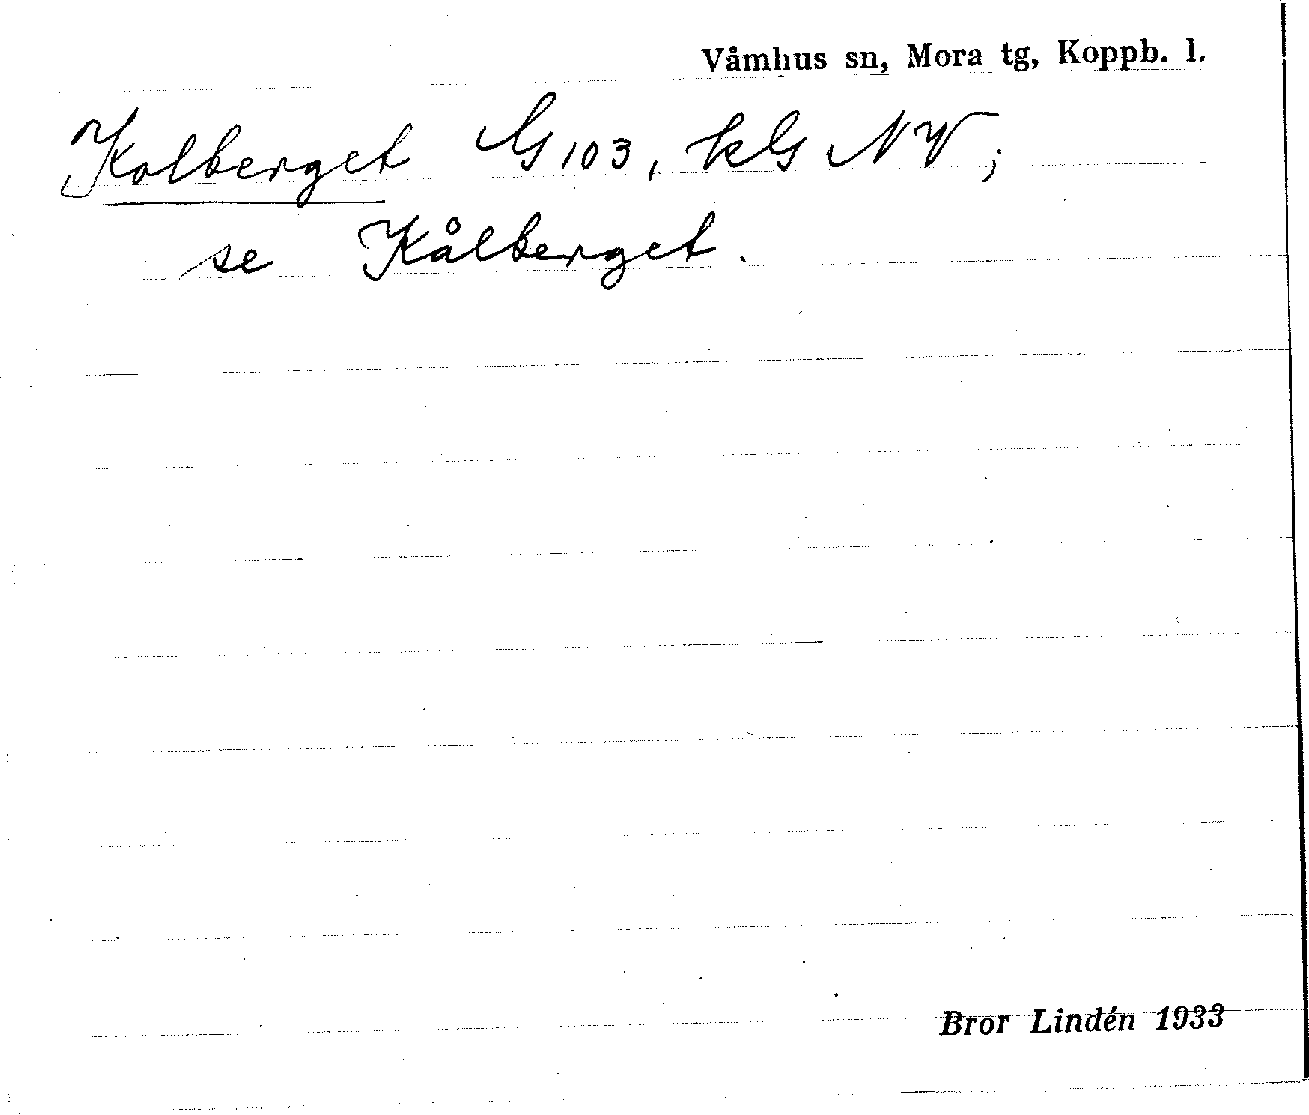 Våmhus sn, Mora tg, Koppb. l.
Kolberget G 103, kG NV;
se Kålberget.
Bror Lindén 1933